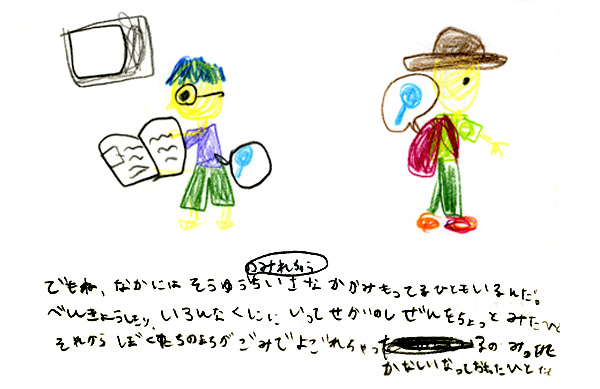 でもね、なかには そうゆうちいさな かがみもってるひともいるんだ。
べんきょうしたり、いろんなくにに いって せかいのしぜんをちょっと みたひと
それから ぼくたちのまちが ごみでよごれちゃっ るの みつけて
ひとだ